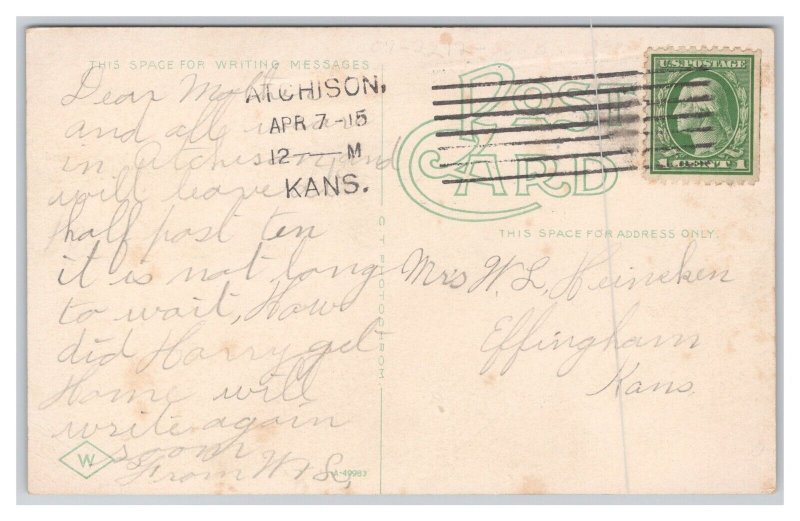 THIS SPACE FOR WRITING MESSAGES
Dear
and all
in Atchison and
will leave
half past ten
it is not long
to wait, How
did Harry get
Home will
write again
soon
From W
W
C.T. PHOTOCHROM
A-49983
ATCHISON,
APR 7-15
12 — M
KANS.
POST CARD
U.S. POSTAGE
1 CENT 1
THIS SPACE FOR ADDRESS ONLY.
Mrs W. L. Heineken
Effingham
Kans